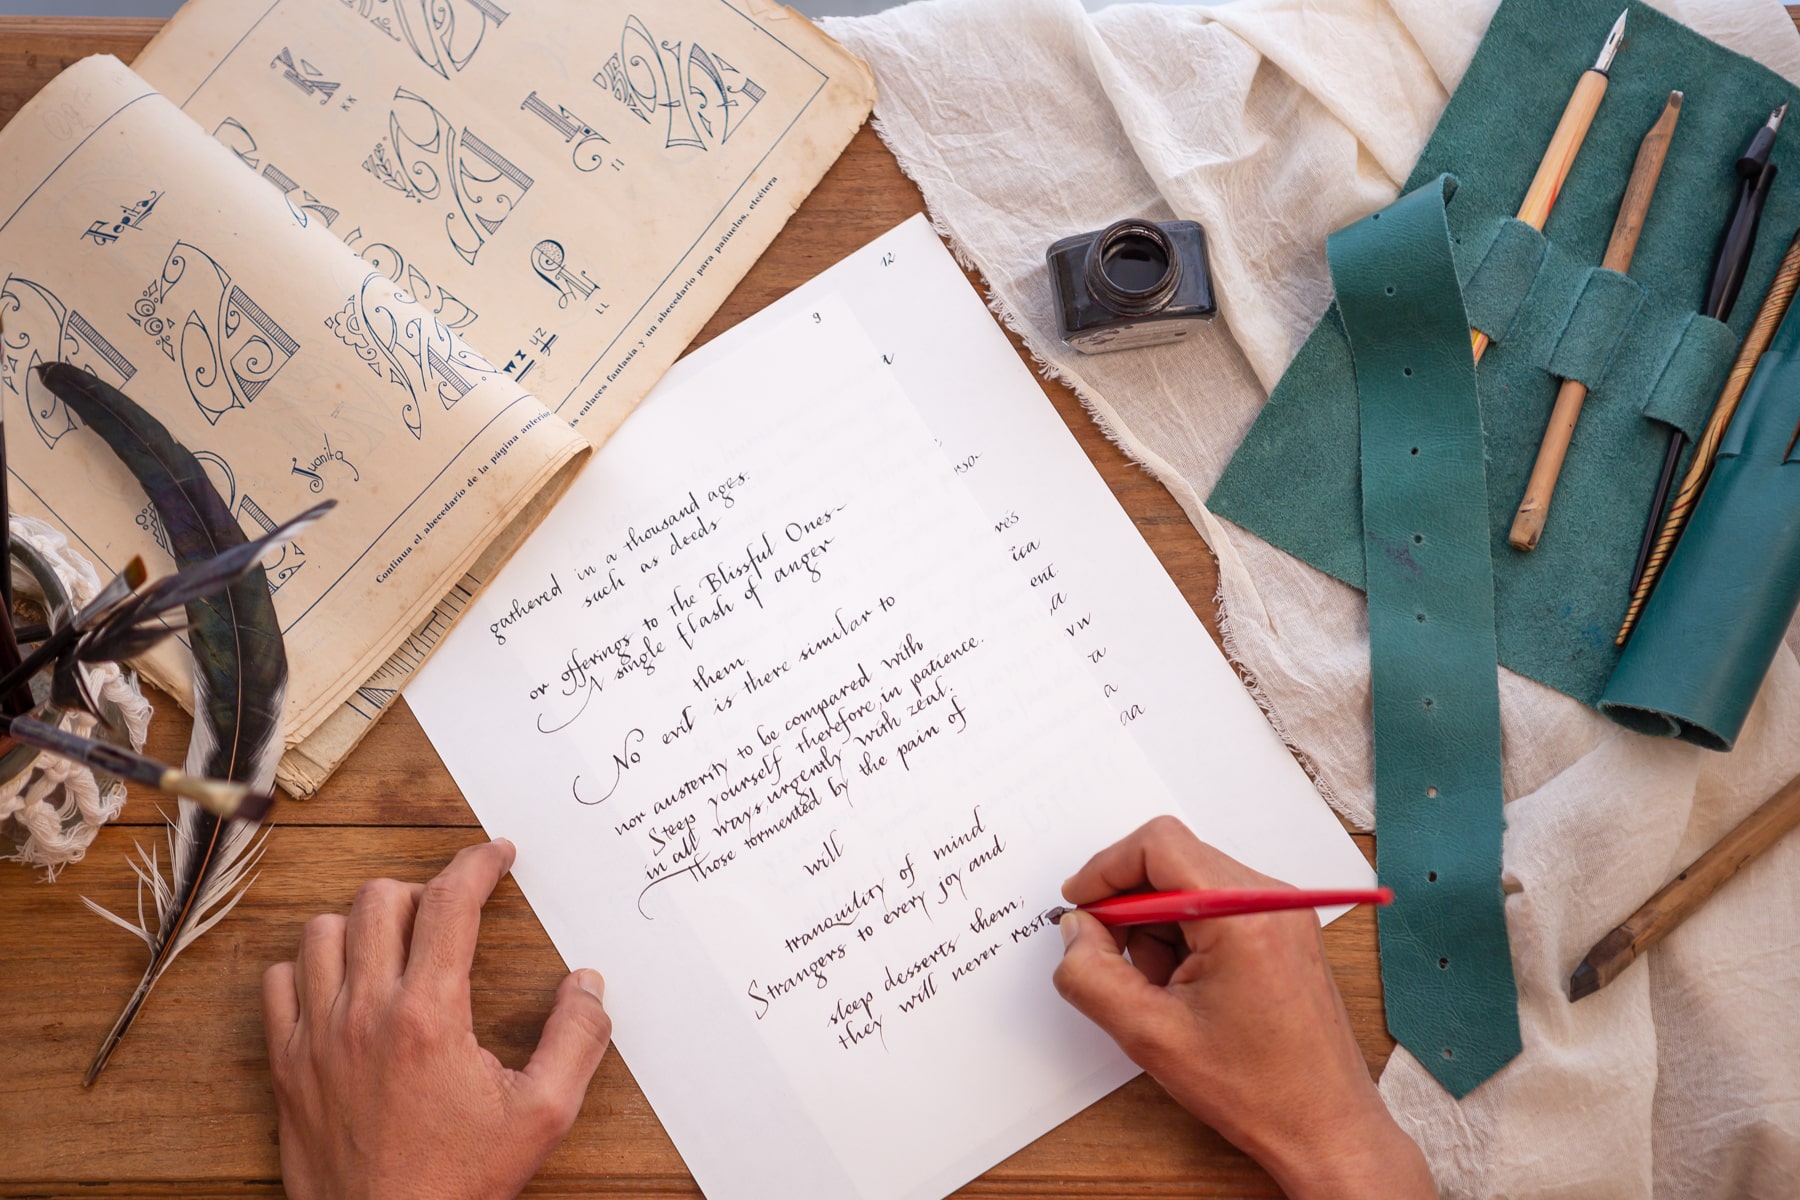 K
KK
II
LL
Pepita
Juanita
Continúa el abecedario de la página anterior
ás enlaces fantasía y un abecedario para pañuelos, etcétera
YZ
12
9
a
rsa
rés
ica
ent
,a
vw
a
a
aa
gathered in a thousand ages.
such as deeds
or offerings to the Blissful Ones
A single flash of anger
them.
No evil is there similar to
nor austerity to be compared with
Steep yourself therefore, in patience.
in all ways, urgently with zeal.
Those tormented by the pain of
will
tranquility of mind
Strangers to every joy and
sleep desserts them;
they will never rest.